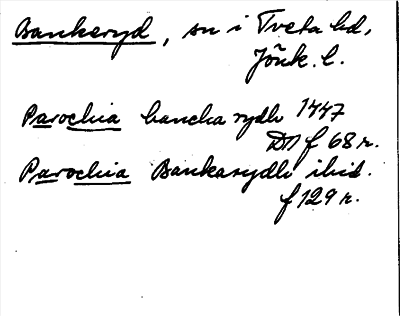 Bankeryd, sn i Tveta hd,
Jönk. l.
Parochia bancka rydh 1447
DN f 68 r.
Parochia Bankarydh ibid.
f 129 r.